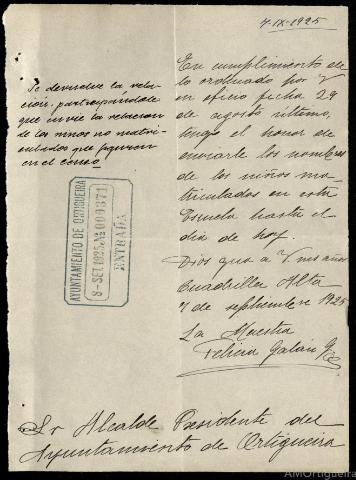 7-IX-1925
En cumplimiento de
lo ordenado por V
en oficio fecha 29
de agosto último,
tengo el honor de
enviarle los nombres
de los niños ma-
triculados en esta
Escuela hasta el
día de hoy.
Dios gua a V ms años
Cuadrilla Alta
7 de septiembre 1925
La Maestra
Felicia Galán
Se devuelve la rela-
ción, participándole
que envíe la relacion
de los niños no matri-
culados que figuran
en el censo
AYUNTAMIENTO DE ORTIGUEIRA
8-SET.1925 Nº 000871
ENTRADA
Sr Alcalde Presidente del
Ayuntamiento de Ortigueira
AMOrtigueira